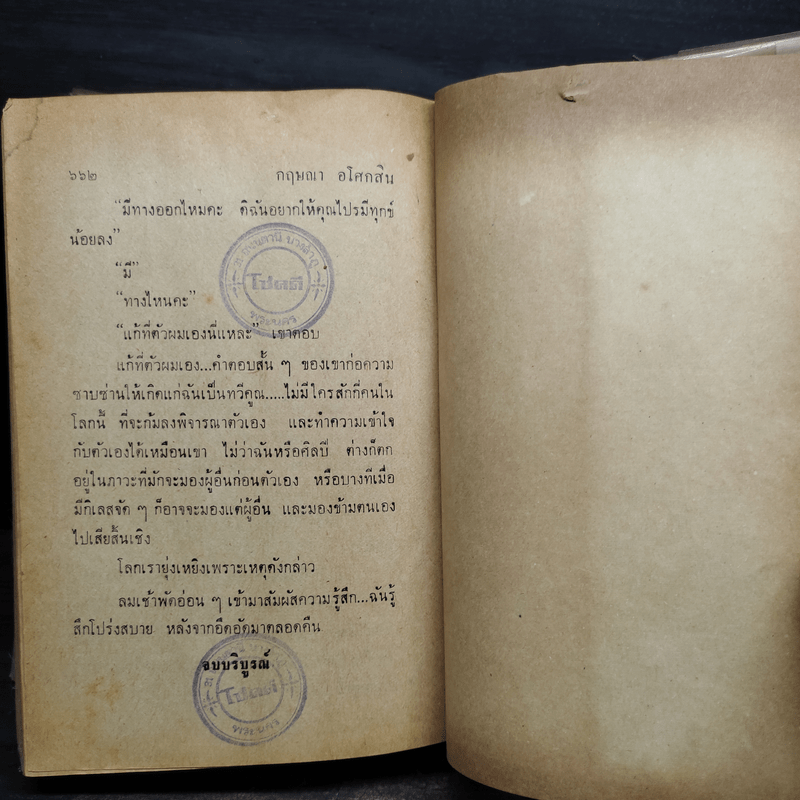 ๖๖๒
กฤษณา อโศกสิน
“มีทางออกไหมคะ ดิฉันอยากให้คุณไปรมีทุกข์
น้อยลง”
“มี”
“ทางไหนคะ”
“แก้ที่ตัวผมเองนี่แหละ” เขาตอบ
แก้ที่ตัวผมเอง...คำตอบสั้น ๆ ของเขาก่อความ
ซาบซ่านให้เกิดแก่ฉันเป็นทวีคูณ.....ไม่มีใครสักกี่คนใน
โลกนี้ ที่จะก้มลงพิจารณาตัวเอง และทำความเข้าใจ
กับตัวเองได้เหมือนเขา ไม่ว่าฉันหรือศิลปี ต่างก็ตก
อยู่ในภาวะที่มักจะมองผู้อื่นก่อนตัวเอง หรือบางทีเมื่อ
มีกิเลสจัด ๆ ก็อาจจะมองแต่ผู้อื่น และมองข้ามตนเอง
ไปเสียสิ้นเชิง
โลกเรายุ่งเหยิงเพราะเหตุดังกล่าว
ลมเช้าพัดอ่อน ๆ เข้ามาสัมผัสความรู้สึก...ฉันรู้
สึกโปร่งสบาย หลังจากอึดอัดมาตลอดคืน
จบบริบูรณ์
บางลำภู
โชคดี
พระนคร
โชคดี
พระนคร